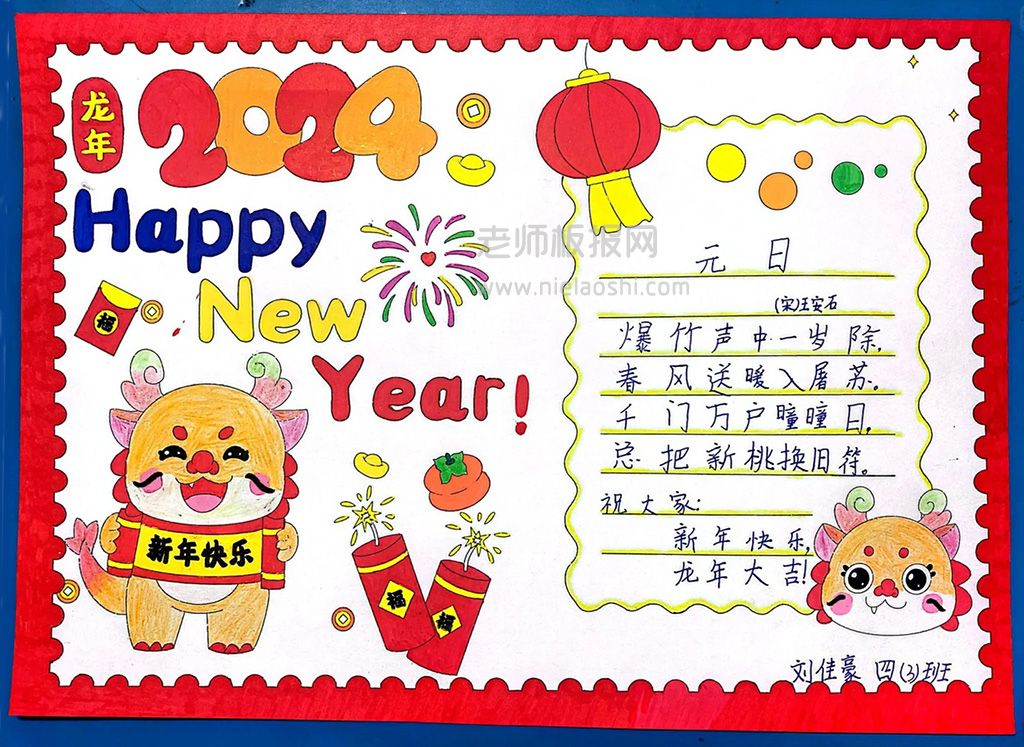 龙年
2024
Happy
New
Year!
福
新年快乐
福
福
老师板报网
www.nielaoshi.com
元 日
(宋)王安石
爆竹声中一岁除,
春风送暖入屠苏。
千门万户曈曈日,
总把新桃换旧符。
祝大家:
新年快乐,
龙年大吉!
刘佳豪 四(3)班